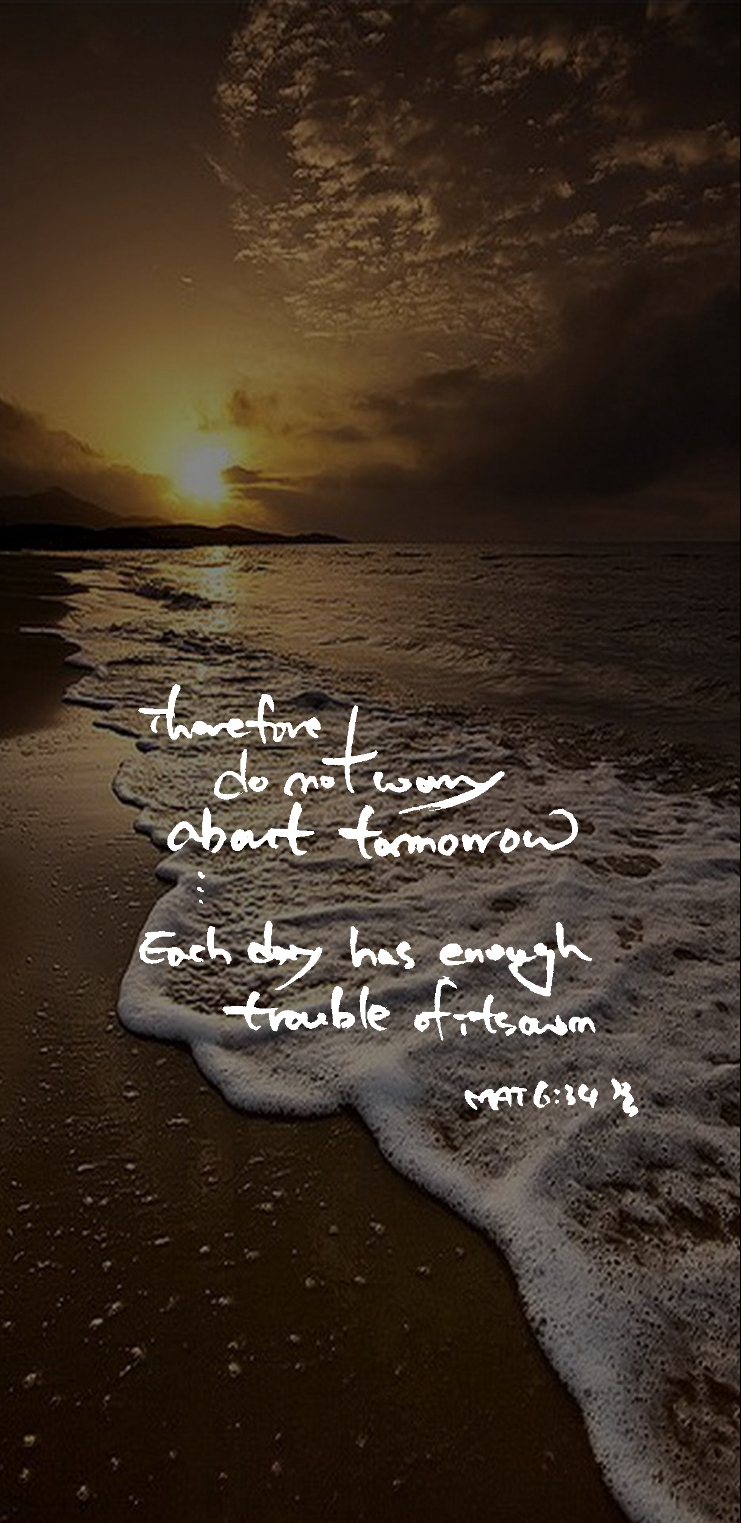 Therefore
do not worry
about tomorrow
⋮
Each day has enough
trouble of its own
MAT 6:34